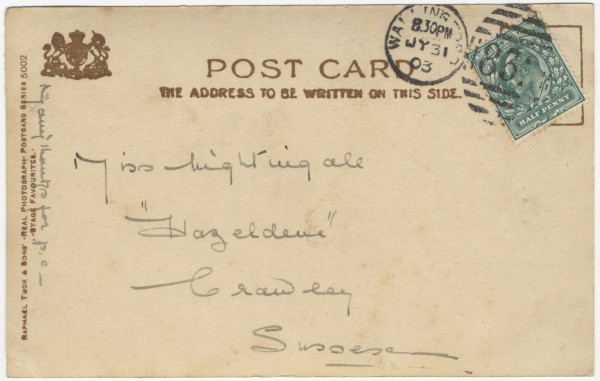 POST CARD
THE ADDRESS TO BE WRITTEN ON THIS SIDE.
8.30PM
JY 31
03
HALF PENNY
Miss Nightingale
"Hazeldene"
Crawley
Sussex
Many thanks for p.c.
RAPHAEL TUCK & SONS' "REAL PHOTOGRAPH" POSTCARD SERIES 5002
"STAGE FAVOURITES."